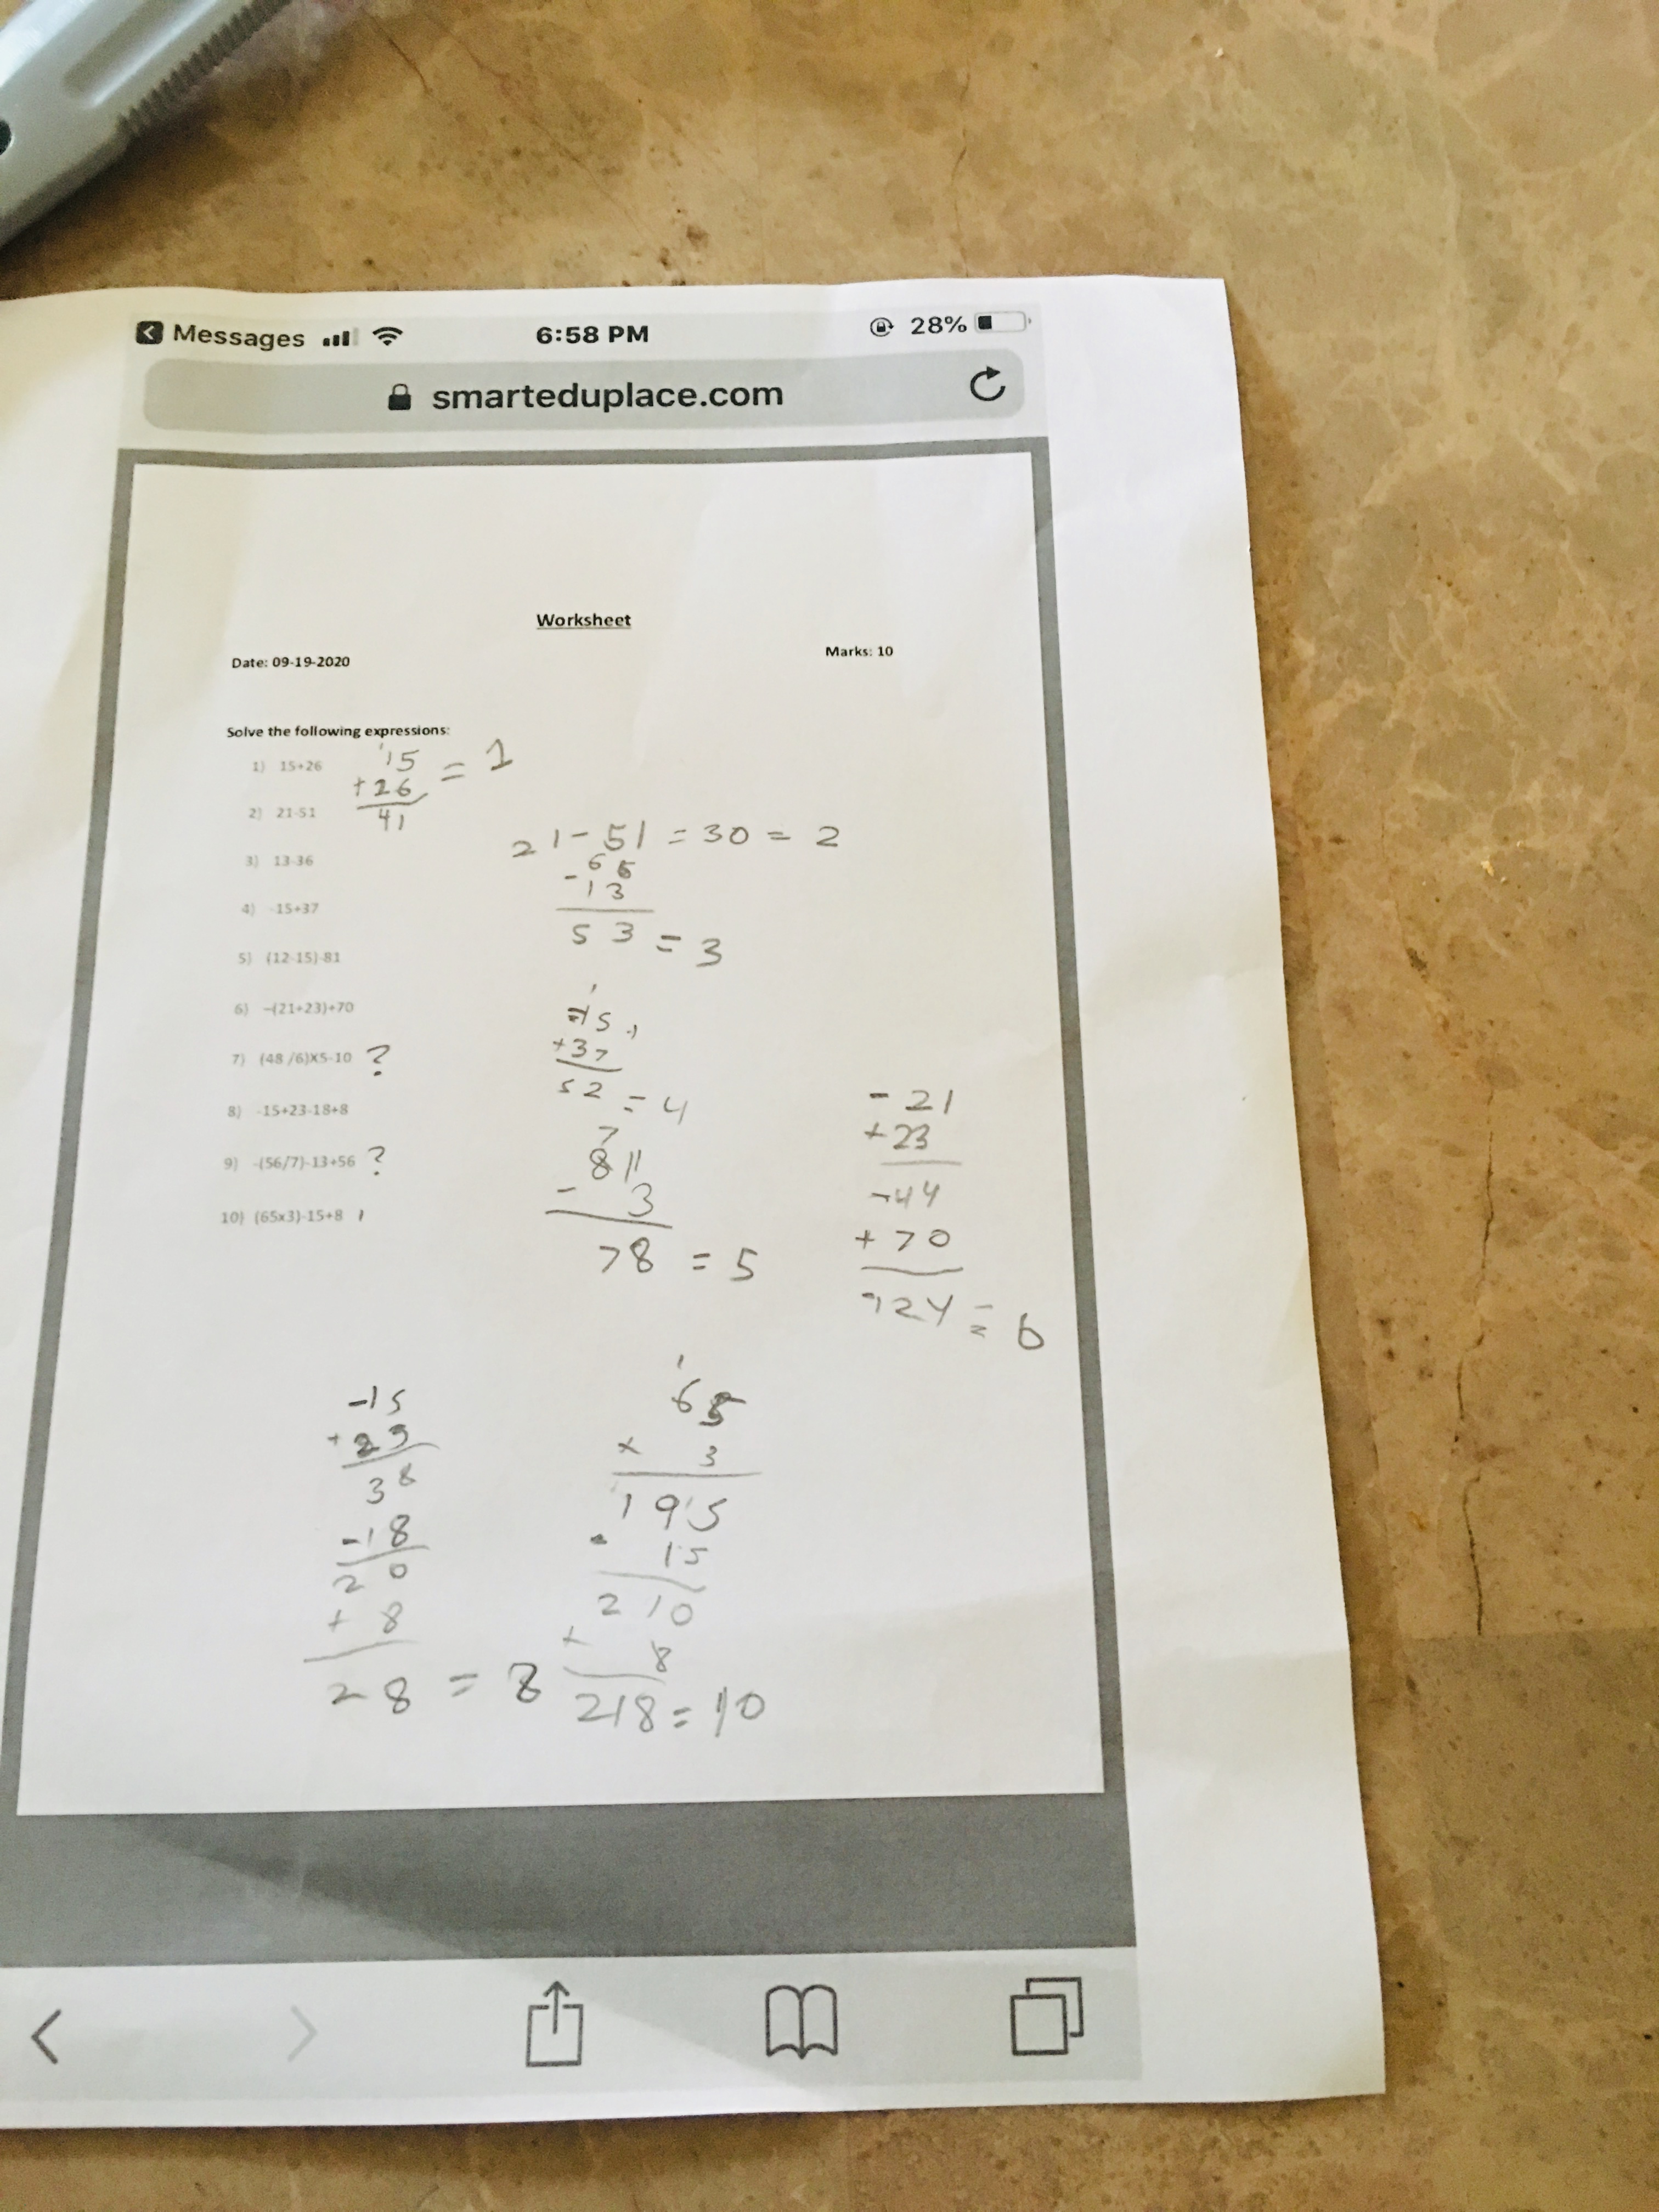 Messages 6:58 PM 28%
smarteduplace.com
Worksheet
Date: 09-19-2020 Marks: 10
Solve the following expressions:
1) 15+26
2) 21-51
3) 13-36
4) -15+37
5) (12-15)-81
6) -(21+23)+70
7) (48/6)X5-10 ?
8) -15+23-18+8
9) -(56/7)-13+56 ?
10) (65x3)-15+8
1
15 = 1
+26
41
21-51 = 30 = 2
66
- 13
53 = 3
1
-15
+37
52 = 4
7
8 11
- 3
78 = 5
- 21
+ 23
-44
+ 70
124 = 6
-15
+23
38
-18
20
+ 8
28 = 8
1
65
x 3
195
- 15
210
+ 8
218 = 10